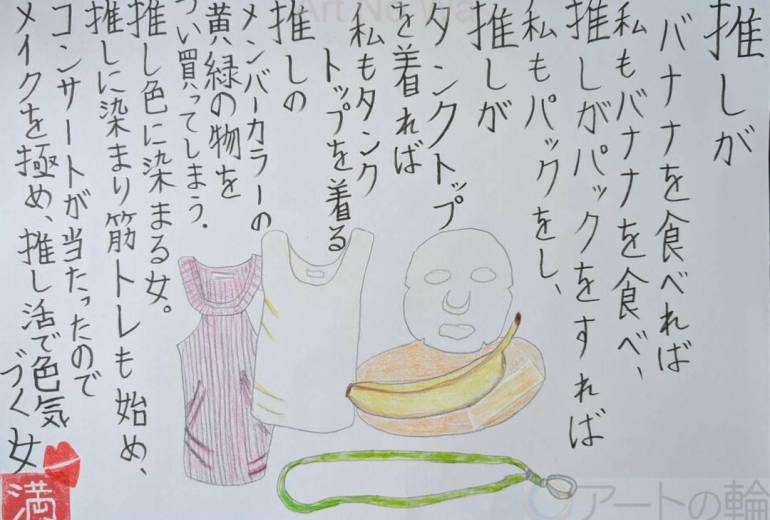 推しが
バナナを食べれば
私もバナナを食べ、
推しがパックをすれば
私もパックをし、
推しが
タンクトップ
を着れば
私もタンク
トップを着る
推しの
メンバーカラーの
黄緑の物を
つい買ってしまう.
推し色に染まる女。
推しに染まり筋トレも始め、
コンサートが当たったので
メイクを極め、推し活で色気
づく女
満
Art No Wa
アートの輪